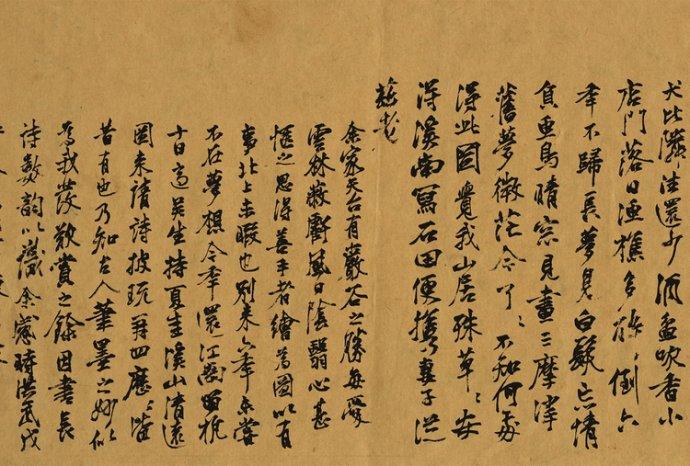 犬比鄰往還少酒盆吹香小
店門落日漁樵多雜倒六
年不歸長夢見白髮忘情
負魚鳥晴窓見畫三摩挲
舊夢微茫今了〻不知何處
得此圖覺我山居殊草〻安
得溪南寫石田便攜妻子從
龐老
余家天台有巖石之勝每愛
雲林巖壑風日陰翳心甚
愜之思得善手者繪為圖以有
事北上未暇也別来六年未嘗
不在夢想今年還江滸留杭
十日適吳生持夏圭溪山清遠
圖来請詩披玩再四歷〻皆
昔有也乃知古人筆墨之妙似
為我發歎賞之餘因書長
詩數韵以識余歲時洪武戊